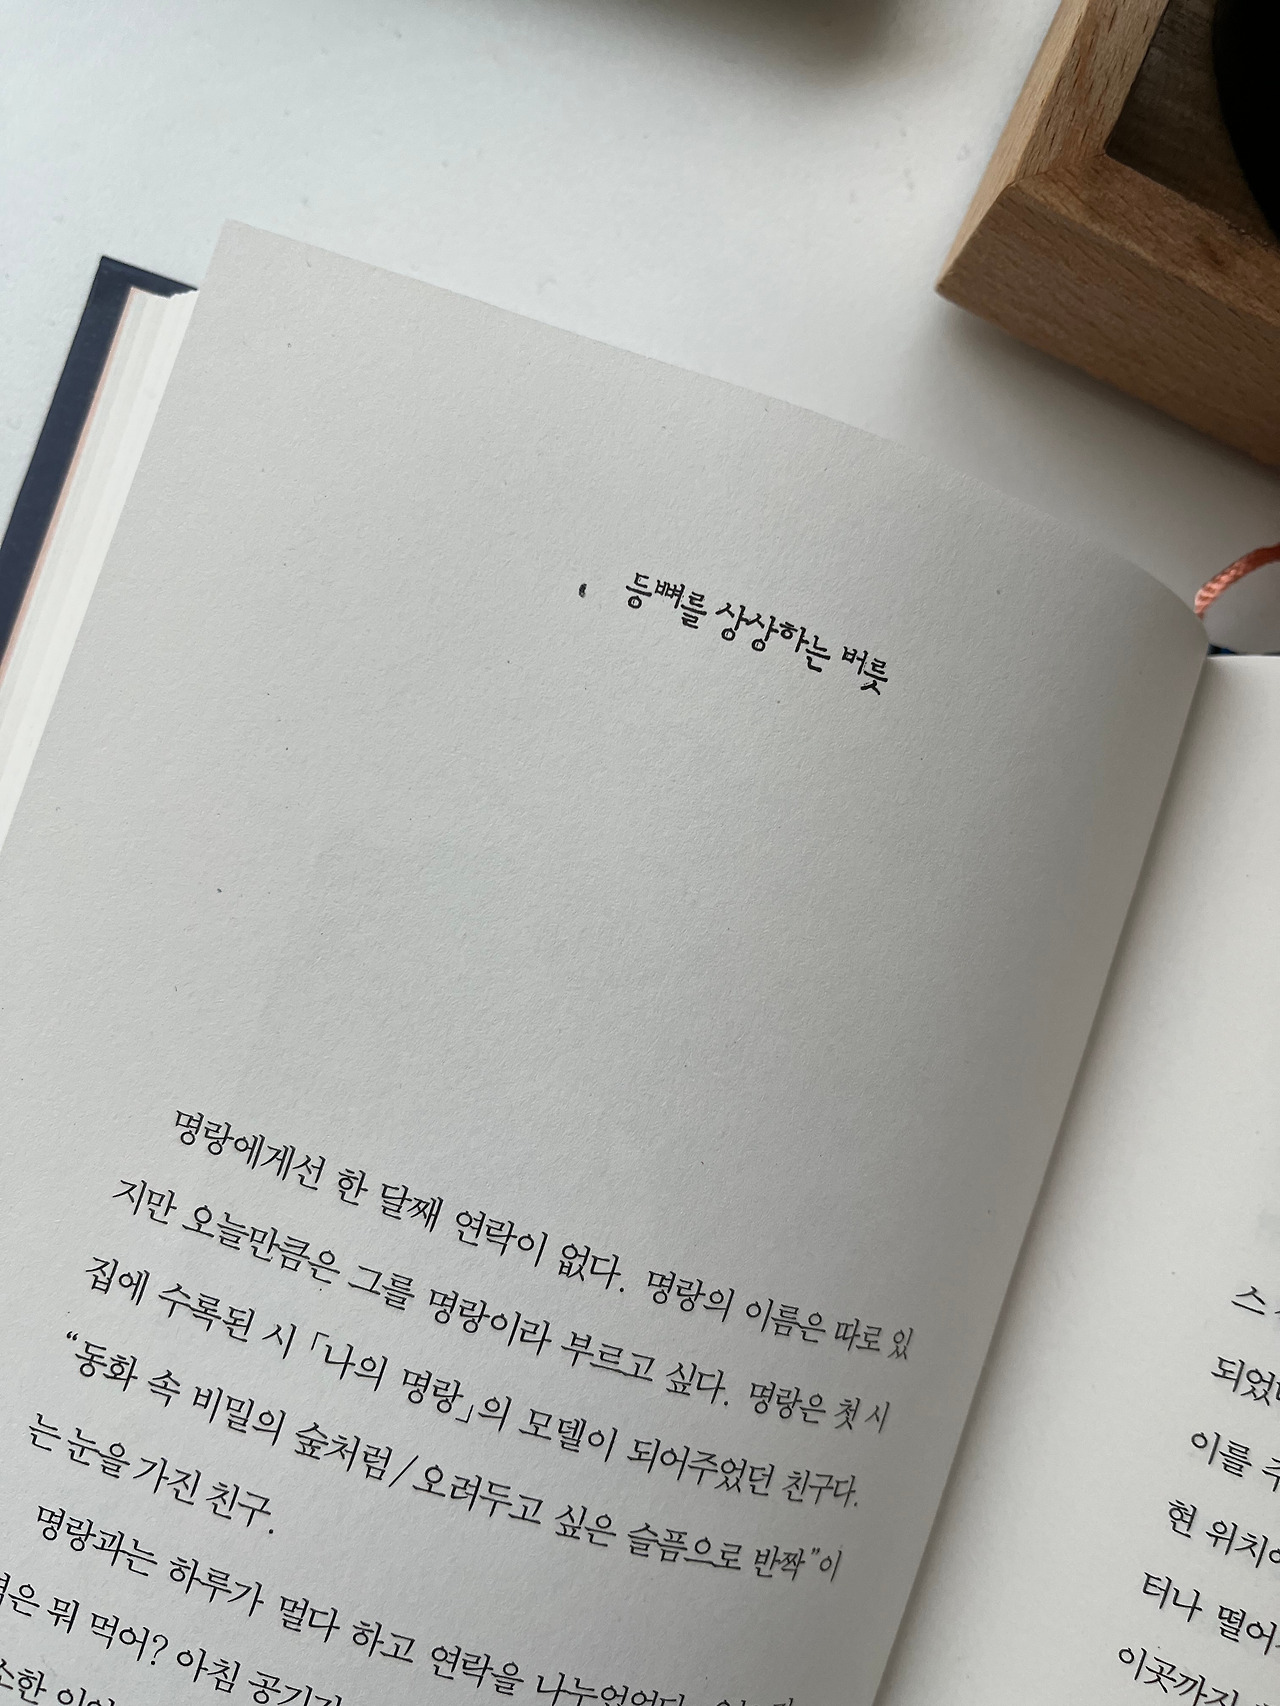 등뼈를 상상하는 버릇
명랑에게선 한 달째 연락이 없다. 명랑의 이름은 따로 있
지만 오늘만큼은 그를 명랑이라 부르고 싶다. 명랑은 첫 시
집에 수록된 시 「나의 명랑」의 모델이 되어주었던 친구다.
“동화 속 비밀의 숲처럼/오려두고 싶은 슬픔으로 반짝”이
는 눈을 가진 친구.
명랑과는 하루가 멀다 하고 연락을 나누었었다.
은 뭐 먹어? 아침 공기가
소한
스
되었
이를
현 위치에
터나 떨어
이곳까지